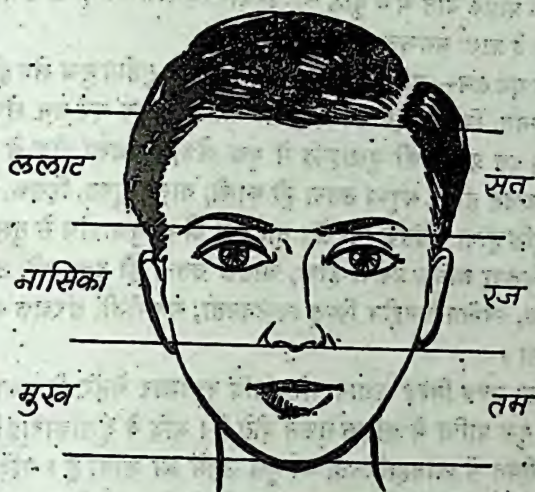 ललाट सत
नासिका रज
मुख तम